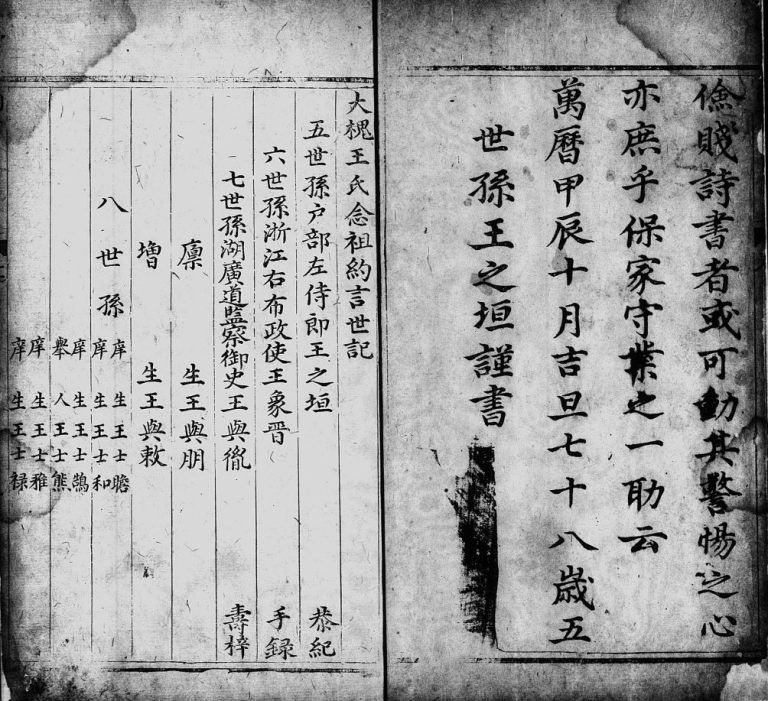 儉賤詩書者或可動其警惕之心
亦庶乎保家守業之一助云
萬曆甲辰十月吉旦七十八歲五
世孫王之垣謹書
大槐王氏念祖約言世記
五世孫户部左侍郎王之垣 恭紀
六世孫浙江右布政使王象晋 手録
七世孫湖廣道監察御史王與胤 壽梓
廪 生王與朋
增 生王與敕
八世孫 庠 生王士瞻
庠 生王士和
庠 生王士鵠
舉 人王士熊
庠 生王士雅
庠 生王士禄